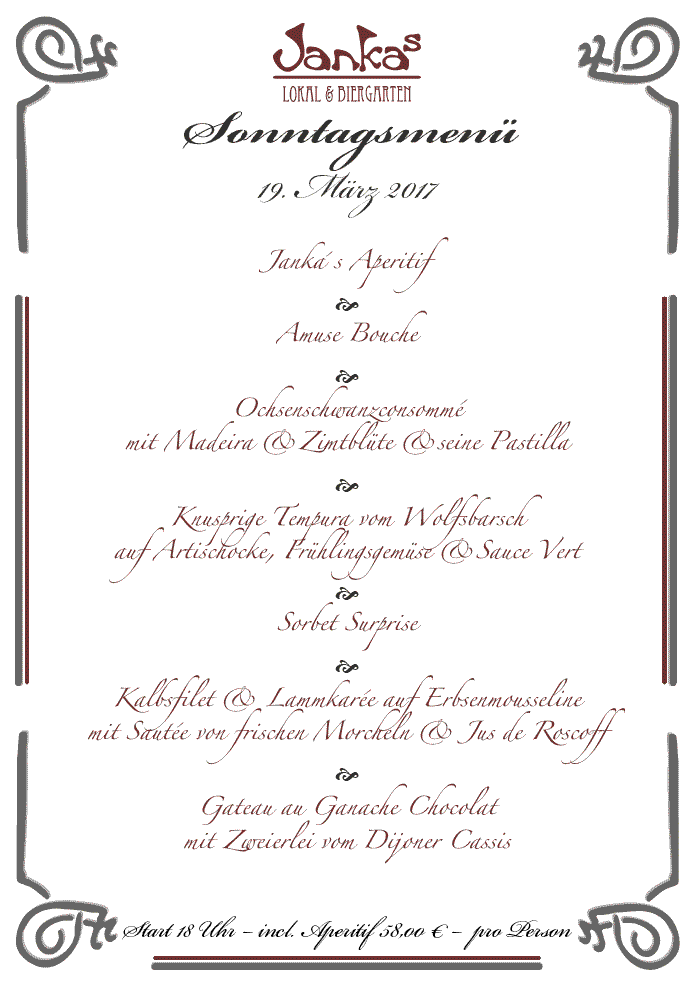 Jankas
LOKAL & BIERGARTEN
Sonntagsmenü
19. März 2017
Janka´s Aperitif
Amuse Bouche
Ochsenschwanzconsommé
mit Madeira & Zimtblüte & seine Pastilla
Knusprige Tempura vom Wolfsbarsch
auf Artischocke, Frühlingsgemüse & Sauce Vert
Sorbet Surprise
Kalbsfilet & Lammkarée auf Erbsenmousseline
mit Sautée von frischen Morcheln & Jus de Roscoff
Gateau au Ganache Chocolat
mit Zweierlei vom Dijoner Cassis
Start 18 Uhr – incl. Aperitif 58,00 € – pro Person